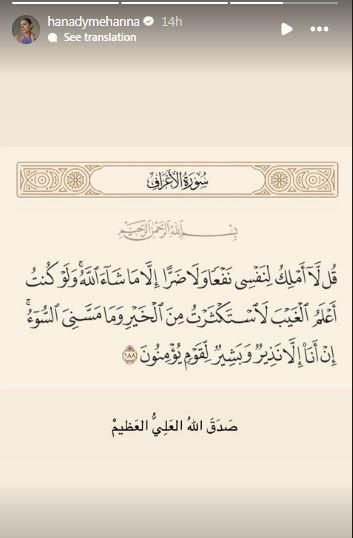 hanadymehanna 14h
See translation
سُورَةُ الأَعْرَافِ
بِسْمِ اللَّهِ الرَّحْمَٰنِ الرَّحِيمِ
قُل لَّآ أَمْلِكُ لِنَفْسِى نَفْعًا وَلَا ضَرًّا إِلَّا مَا شَآءَ ٱللَّهُ ۚ وَلَوْ كُنتُ
أَعْلَمُ ٱلْغَيْبَ لَٱسْتَكْثَرْتُ مِنَ ٱلْخَيْرِ وَمَا مَسَّنِىَ ٱلسُّوٓءُ ۚ
إِنْ أَنَا۠ إِلَّا نَذِيرٌ وَبَشِيرٌ لِّقَوْمٍ يُؤْمِنُونَ ١٨٨
صَدَقَ اللهُ العَلِيُّ العَظيمْ